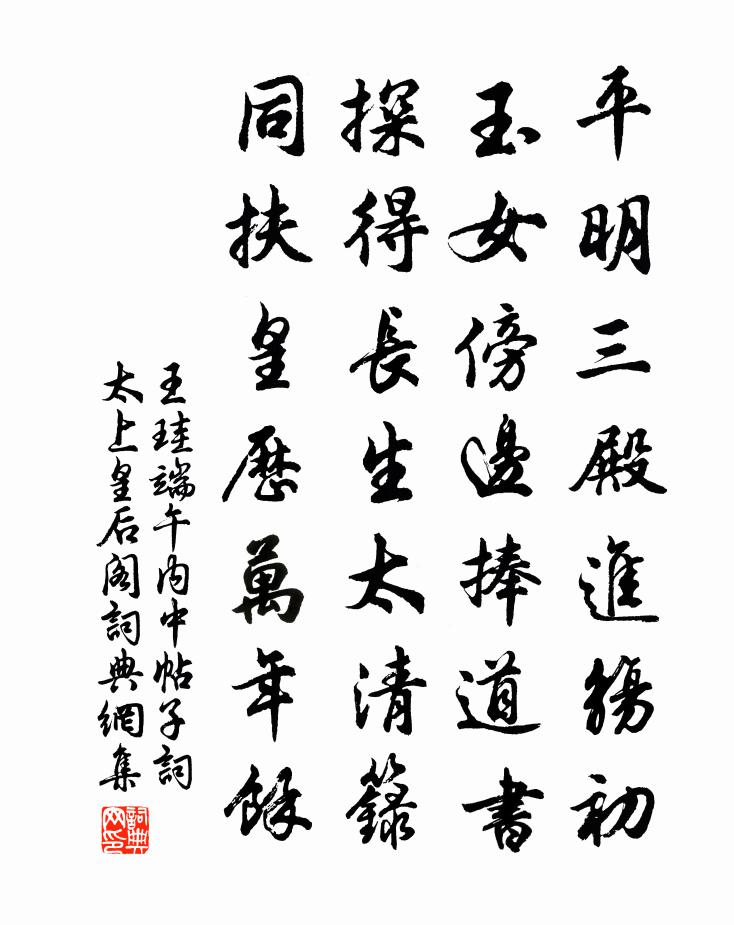 平明三殿進觴初
玉女傍邊捧道書
探得長生太清籙
同扶皇曆萬年餘
王珪端午內中帖子詞
太上皇后閣詞典網集
詞典网印